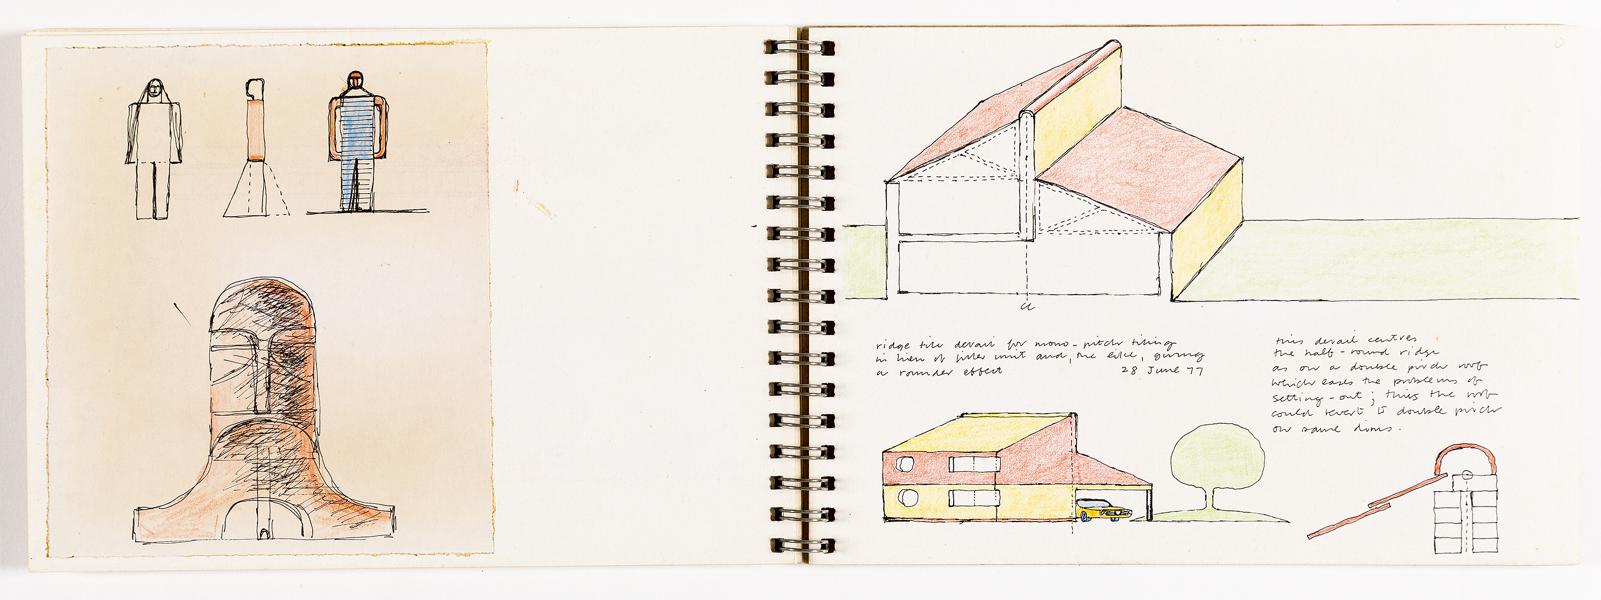 CL
ridge tile detail for mono-pitch tiling
in lieu of filler unit and, me like, giving
a rounder effect 28 June 77
this detail centres
the half-round ridge
as on a double pitch roof
which eases the problems of
setting-out; thus the roof
could revert to double pitch
on same dims.